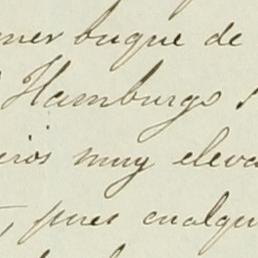 mer buque de
Hamburgo s
eros muy eleva
, pues cualqui